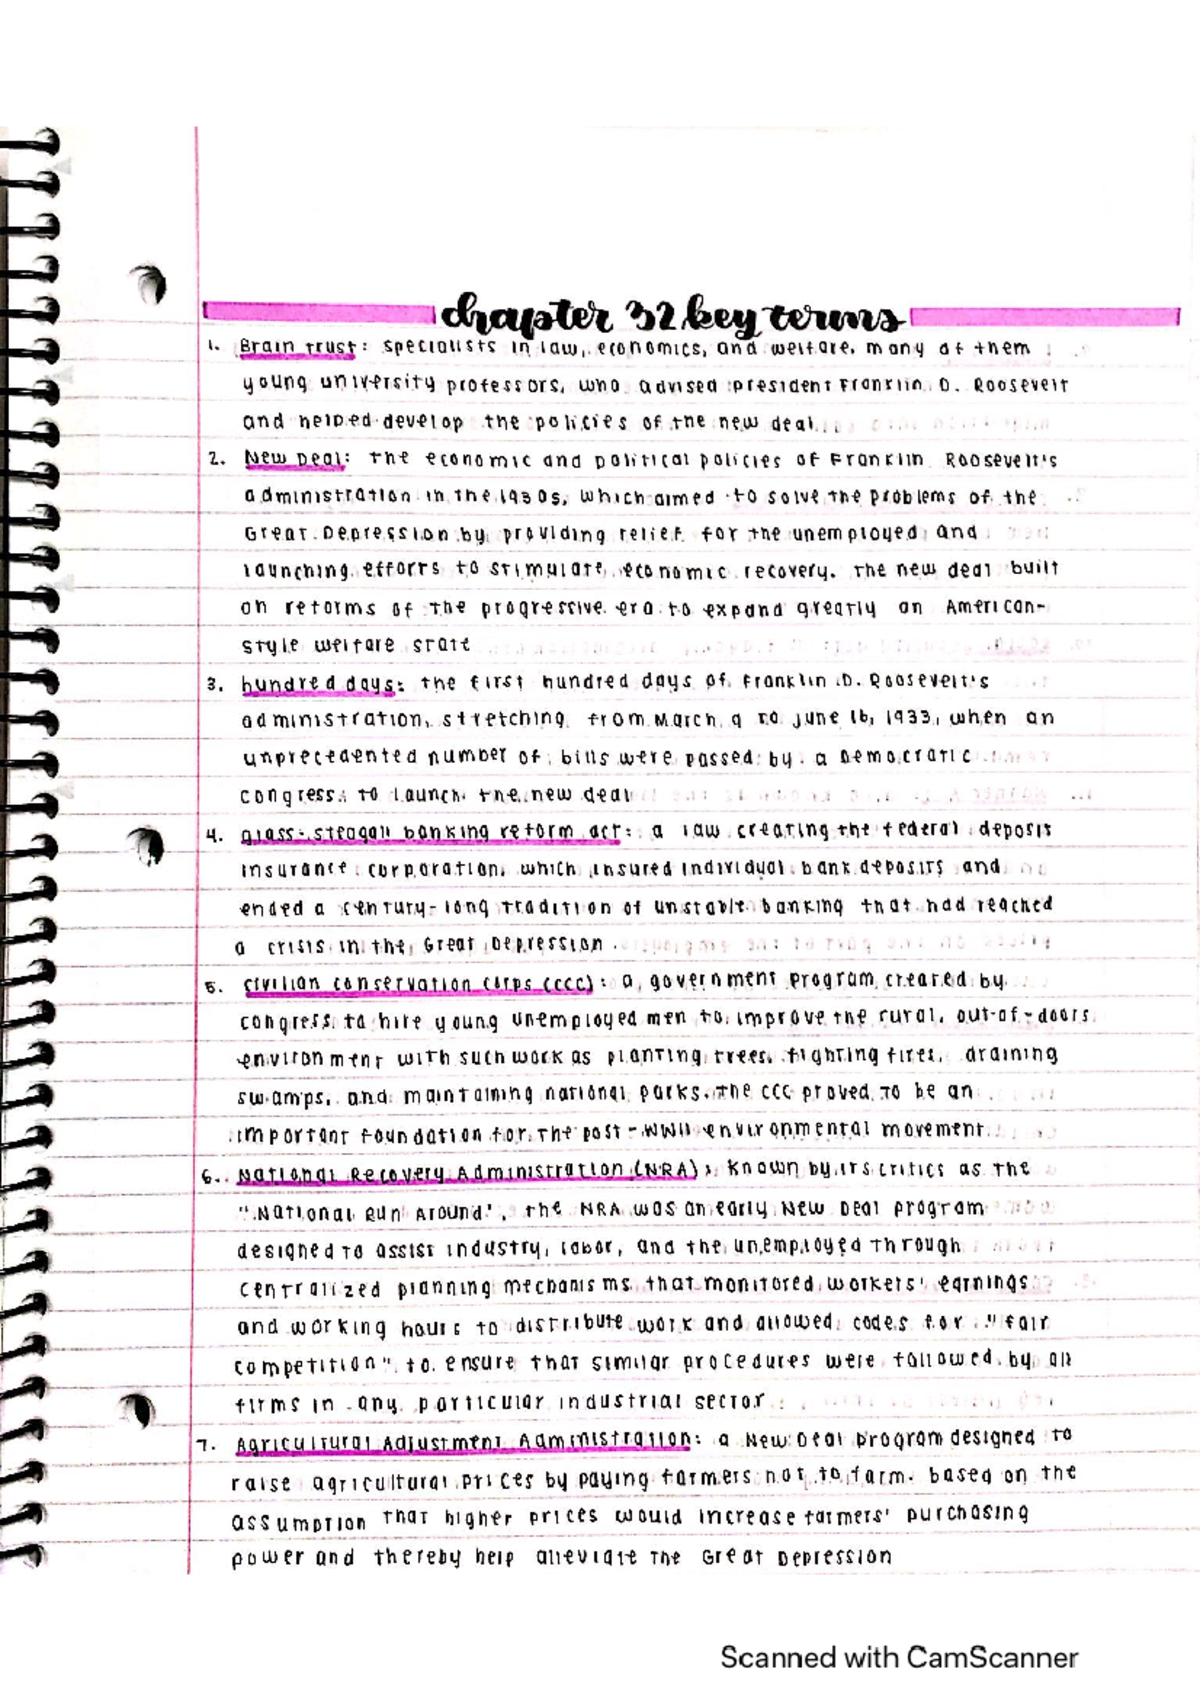 chapter 32 key terms
1. Brain trust: specialists in law, economics, and welfare, many of them
young university professors, who advised president Franklin D. Roosevelt
and helped develop the policies of the new deal.
2. New Deal: the economic and political policies of Franklin Roosevelt's
administration in the 1930s, which aimed to solve the problems of the
Great Depression by providing relief for the unemployed and
launching efforts to stimulate economic recovery. The new deal built
on reforms of the progressive era to expand greatly an American-
style welfare state
3. hundred days: the first hundred days of Franklin D. Roosevelt's
administration, stretching from March 9 to June 16, 1933, when an
unprecedented number of bills were passed by a Democratic
congress to launch the new deal
4. glass-steagall banking reform act: a law creating the federal deposit
insurance corporation, which insured individual bank deposits and
ended a century-long tradition of unstable banking that had reached
a crisis in the Great Depression.
5. civilian conservation corps (CCC): a government program created by
congress to hire young unemployed men to improve the rural, out-of-doors
environment with such work as planting trees, fighting fires, draining
swamps, and maintaining national parks. The CCC proved to be an
important foundation for the post-WWII environmental movement.
6. National Recovery Administration (NRA): known by its critics as the
"National Run Around", the NRA was an early New Deal program
designed to assist industry, labor, and the unemployed through
centralized planning mechanisms that monitored workers' earnings
and working hours to distribute work and allowed codes for "fair
competition" to ensure that similar procedures were followed by all
firms in any particular industrial sector.
7. Agricultural Adjustment Administration: a New Deal program designed to
raise agricultural prices by paying farmers not to farm. based on the
assumption that higher prices would increase farmers' purchasing
power and thereby help alleviate the Great Depression
Scanned with CamScanner